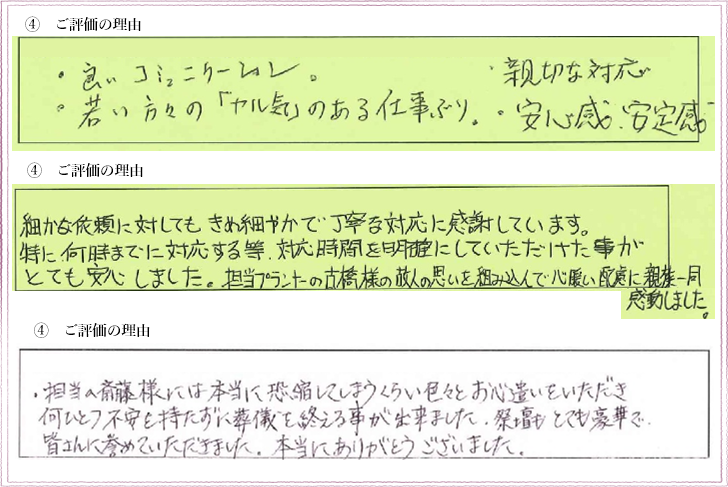 ④ ご評価の理由
・良いコミュニケーション。 ・親切な対応
・若い方々の「ヤル気」のある仕事ぶり。・安心感、安定感
④ ご評価の理由
細かな依頼に対しても きめ細やかで丁寧な対応に感謝しています。
特に何時までに対応する等、対応時間を明確にしていただけた事が
とても安心しました。担当プランナーの古橋様の故人の思いを組み込んで心暖い配慮に親族一同
感動しました。
④ ご評価の理由
・担当の斎藤様には本当に恐縮してしまうくらい色々とお心遣いをいただき
何ひとつ不安を持たずに葬儀を終える事が出来ました。祭壇もとても豪華で、
皆さんに誉めていただきました。本当にありがとうございました。